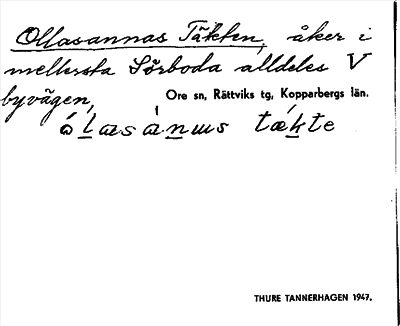 Ollasannas Täkten, åker i
mellersta Sörboda alldeles V
byvägen,
Ore sn, Rättviks tg, Kopparbergs län.
THURE TANNERHAGEN 1947.